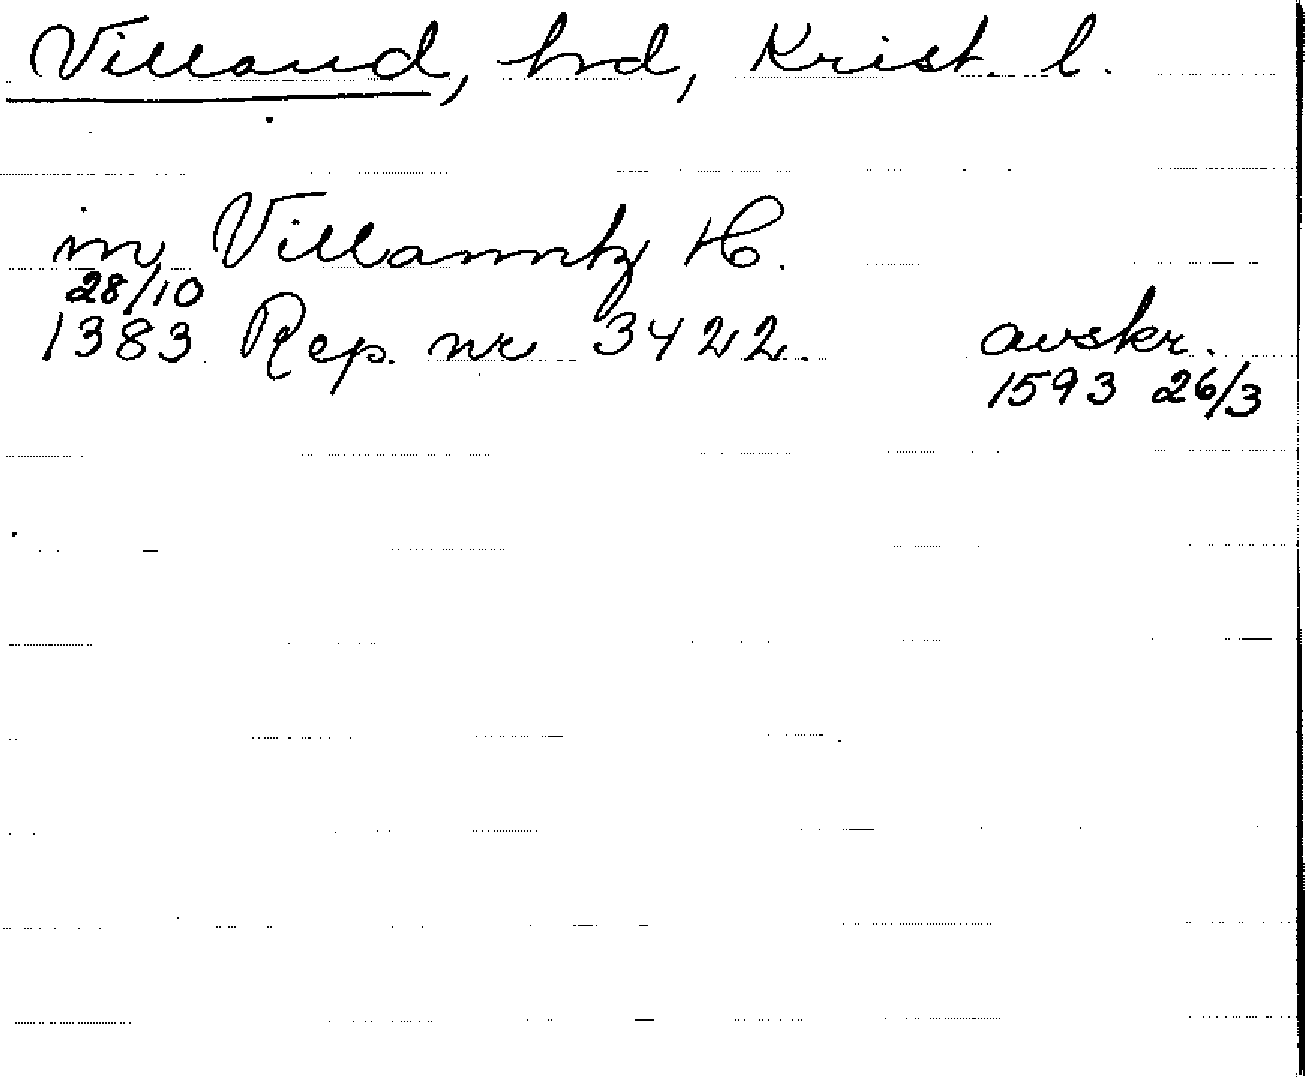 Villand, hrd, Krist. l.
in Villanntz H.
28/10
1383 Rep. nr 3422. avskr.
1593 26/3